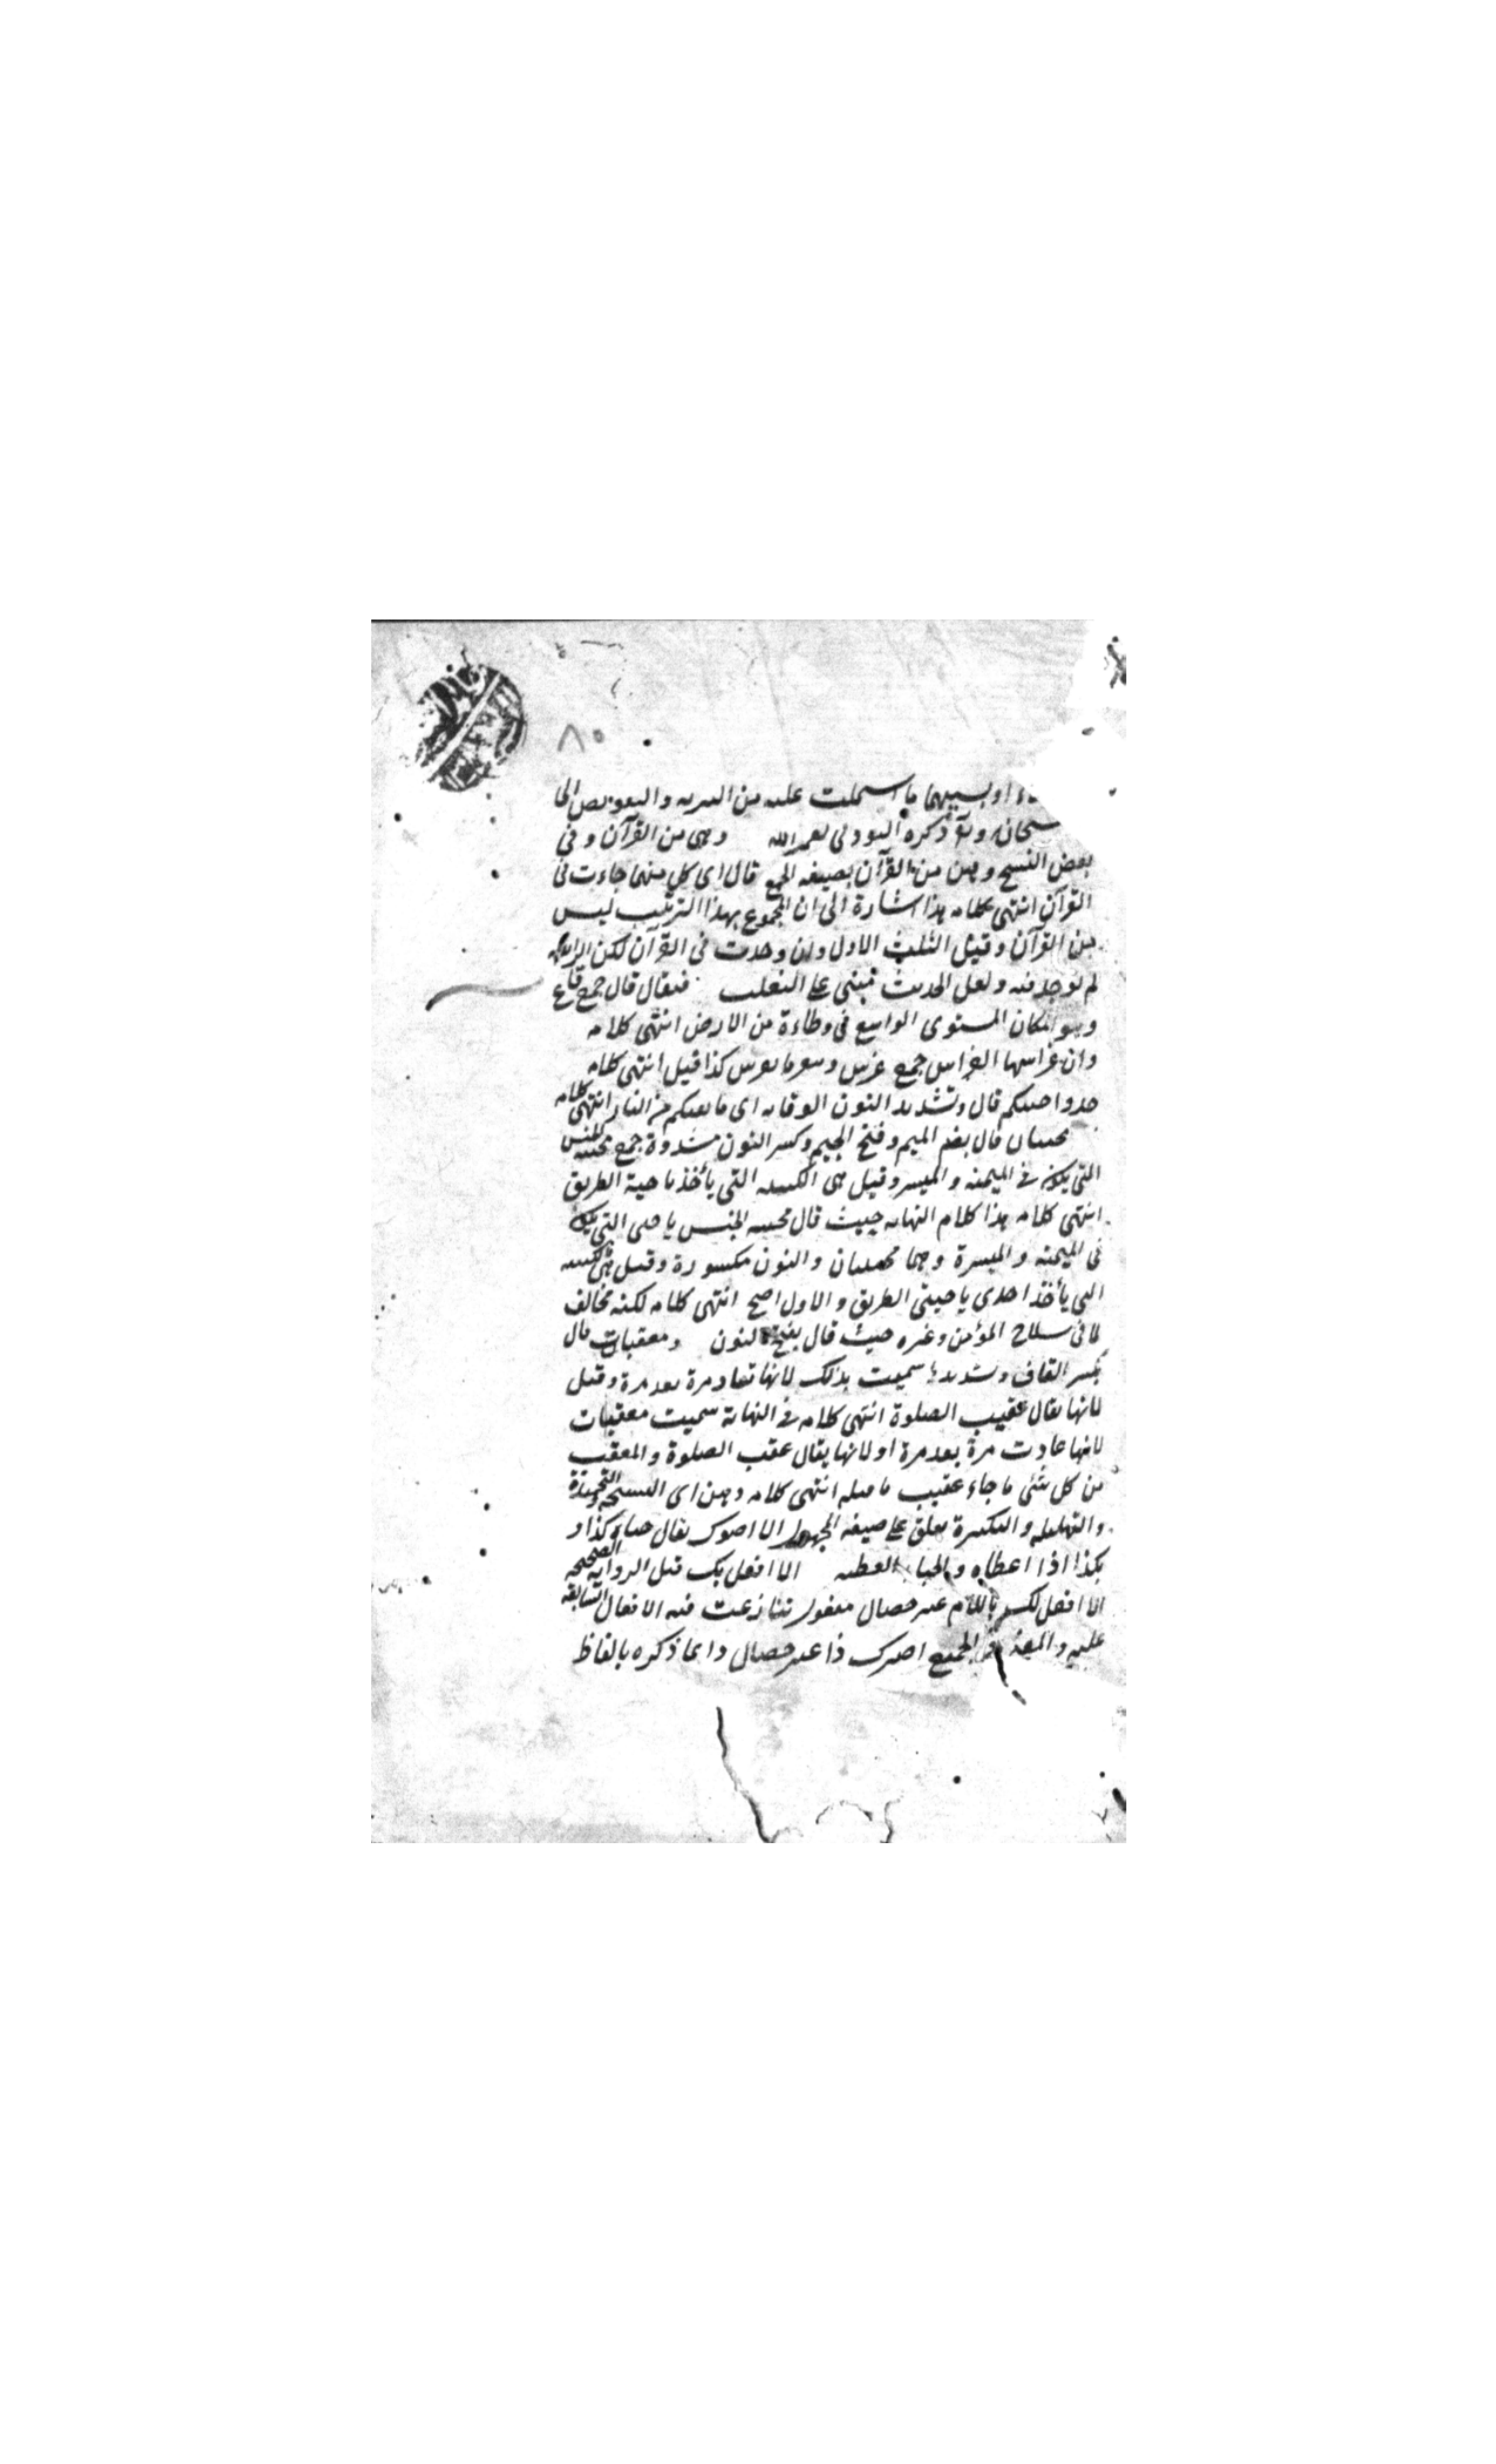 ٨٥
او بسببهما ما اشتملت عليه من التنزيه والتفويض الى
سبحانه و ذكره وهى من القرآن وفى
بعض النسخ وهن من القرآن بصيغة الجمع قال اى كل منها جاءت فى
القرآن انتهى كلامه هذا اشارة الى ان المجموع بهذا الترتيب ليس
من القرآن وقيل الثلث الاول وان وجدت فى القرآن لكن الرابعة
لم توجد فيه ولعل الحديث مبنى على التغليب قيعان قال جمع قاع
وهو المكان المستوى الواسع فى وطاءة من الارض انتهى كلامه
وان غراسها الغراس جمع غرس وهو ما يغرس كذا قيل انتهى كلامه
خذوا جنتكم قال وتشديد النون الوقاية اى ما يقيكم من النار انتهى كلامه
مجنبات قال بضم الميم وفتح الجيم وكسر النون مشددة جمع مجنبة الجيش
التى يكون فى الميمنه والميسر وقيل هى الكتيبه التى يأخذ ناحية الطريق
انتهى كلامه هذا كلام النهايه حيث قال مجنبه الجيش هى التى يكون
فى الميمنه والميسرة وهما مجنبتان والنون مكسورة وقيل هى الكتيبه
التى يأخذ احدى ناحيتى الطريق والاول اصح انتهى كلامه لكنه مخالف
لما فى سلاح المؤمن وغيره حيث قال بفتح النون ومعقبات قال
بكسر القاف وتشديدها سميت بذلك لانها تعاد مرة بعد مرة وقيل
لانها يقال عقيب الصلوة انتهى كلامه فى النهاية سميت معقبات
لانها عادت مرة بعد مرة او لانها يقال عقب الصلوة والمعقب
من كل شئى ما جاء عقيب ما قبله انتهى كلامه وهن اى التسبيحه والتحميدة
والتهليله والتكبيرة يعلق على صيغه المجهول الا احبوك يقال حباه كذا و
بكذا اذا اعطاه والحباء العطيه الا افعل بك قيل الرواية الصحيحه
الا افعل لك باللام عشر خصال مفعول تنازعت فيه الافعال السابقه
عليه و الجميع اصيرك ذا عشر خصال وانما ذكره بالفاظ